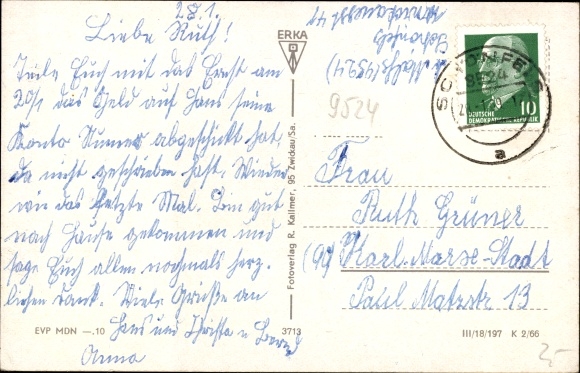 28.1.
Liebe Ruth!
Teile Euch mit das Ernst am
20/1 das Geld auf Hans seine
Konto Numer abgeschikt hat,
da nicht geschrieben hast. Wieder
wie das letzte Mal. Bin gut
nach Hause gekommen und
sage Euch allen nochmals herz-
lichen Dank. Viele Grüße an
Hans und Christa u Bernd
Anna
ERKA
Fotoverlag R. Kallmer, 95 Zwickau/Sa.
3713
EVP MDN —.10
III/18/197 K 2/66
Schönfels
9524
SCHÖNFELS
9524
a
10
DEUTSCHE
DEMOKRATISCHE REPUBLIK
9524
Frau
Ruth Grüner
(90) Karl-Marx-Stadt
Paul Matzstr 13